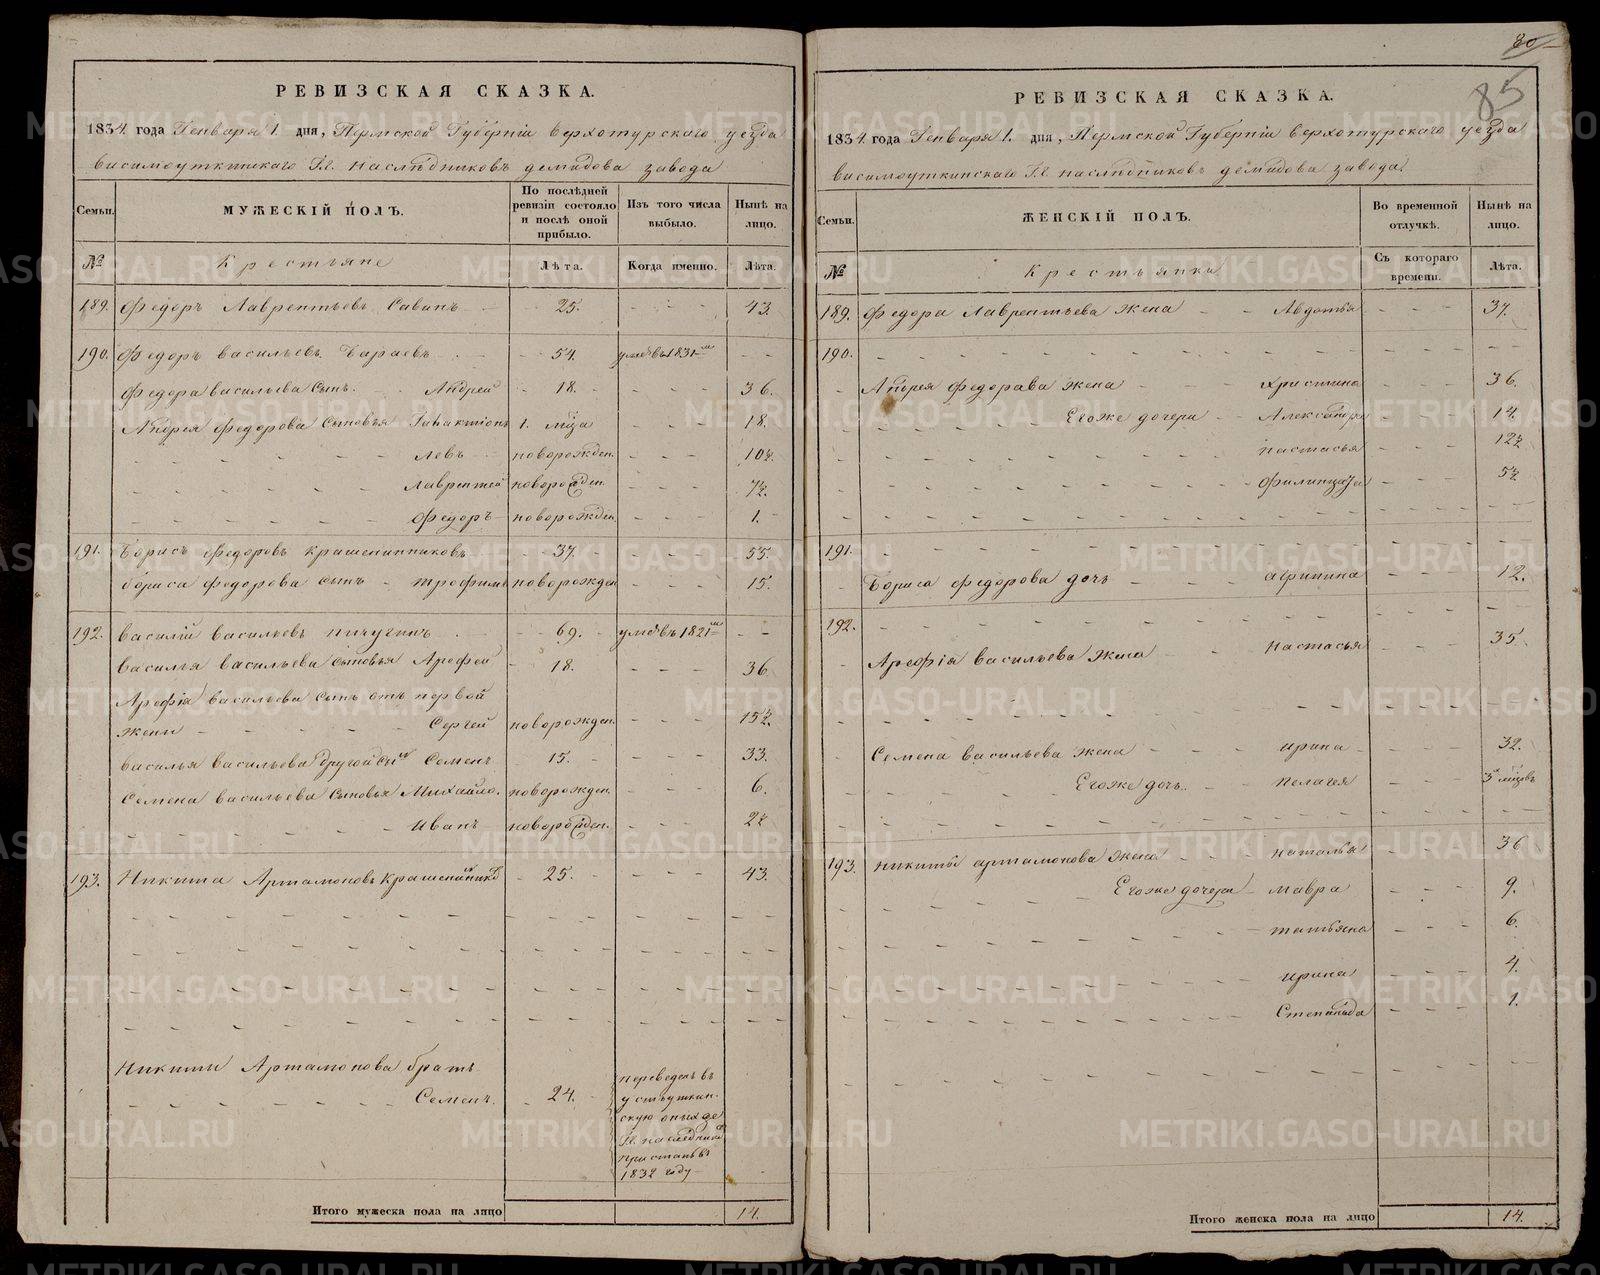 РЕВИЗСКАЯ СКАЗКА.
1834. года Генваря 1. дня, Пермской Губернiи верхотурскаго уезда
висимоуткинскаго Гг. наслѣдниковъ демидова завода
Семьи.
МУЖЕСКIЙ ПОЛЪ.
По послѣдней ревизiи состояло и послѣ оной прибыло.
Изъ того числа выбыло.
Нынѣ на лицо.
№
Крестьяне
Лѣта.
Когда именно.
Лѣта.
189. Федоръ Лаврентьевъ 25. 43.
190. Федоръ васильевъ 54. 1831
Федора васильева сынъ Андрей 18. 36.
Андрея федорова сыновья 1. мца 18.
левъ новорожден. 10½.
лаврентей новорожден. 7½.
федоръ новорожден 1.
191. Борисъ федоровъ крашенинниковъ 37. 55.
бориса федорова сынъ трофимъ новорожден 15.
192. василiй васильевъ пичугинъ 69. 1821
василья васильева сыновья Арефей 18. 36
Арефiя васильева сынъ отъ первой
жены Сергей новорожден. 15½.
василья васильева другой сынъ Семенъ 15. 33.
семена васильева сыновья Михайло. новорожден. 6.
иванъ новорожден. 2½
193. Никита Артамоновъ крашенинниковъ 25. 43.
Никиты Артамонова братъ
Семенъ. 24.
переведенъ въ
усть уткин-
скую оныхъ же
Гг. наследниковъ
пристань въ
1832 году
Итого мужеска пола на лицо 14.
80
85
РЕВИЗСКАЯ СКАЗКА.
1834. года Генваря 1. дня, Пермской Губернiи верхотурскаго уезда
висимоуткинскаго Гг наслѣдниковъ демидова завода.
Семьи.
ЖЕНСКIЙ ПОЛЪ.
Во временной отлучкѣ.
Нынѣ на лицо.
№
Крестьянки
Съ котораго времени.
Лѣта.
189. Федора Лаврентьева жена Авдотья 37.
190.
Андрея федорава жена христина 36.
Егоже дочери Александра 14.
настасья 12½
5½
191.
Бориса федорова дочь агрипина 12.
192.
Арефiя васильева жена настасья 35.
Семена васильева жена ирина 32.
Егоже дочь. пелагея
193. никиты артамонова жена наталья 36
Егоже дочери мавра 9.
татьяна 6.
ирина 4.
Степанида 1.
Итого женска пола на лицо 14.
METRIKI.GASO-URAL.RU